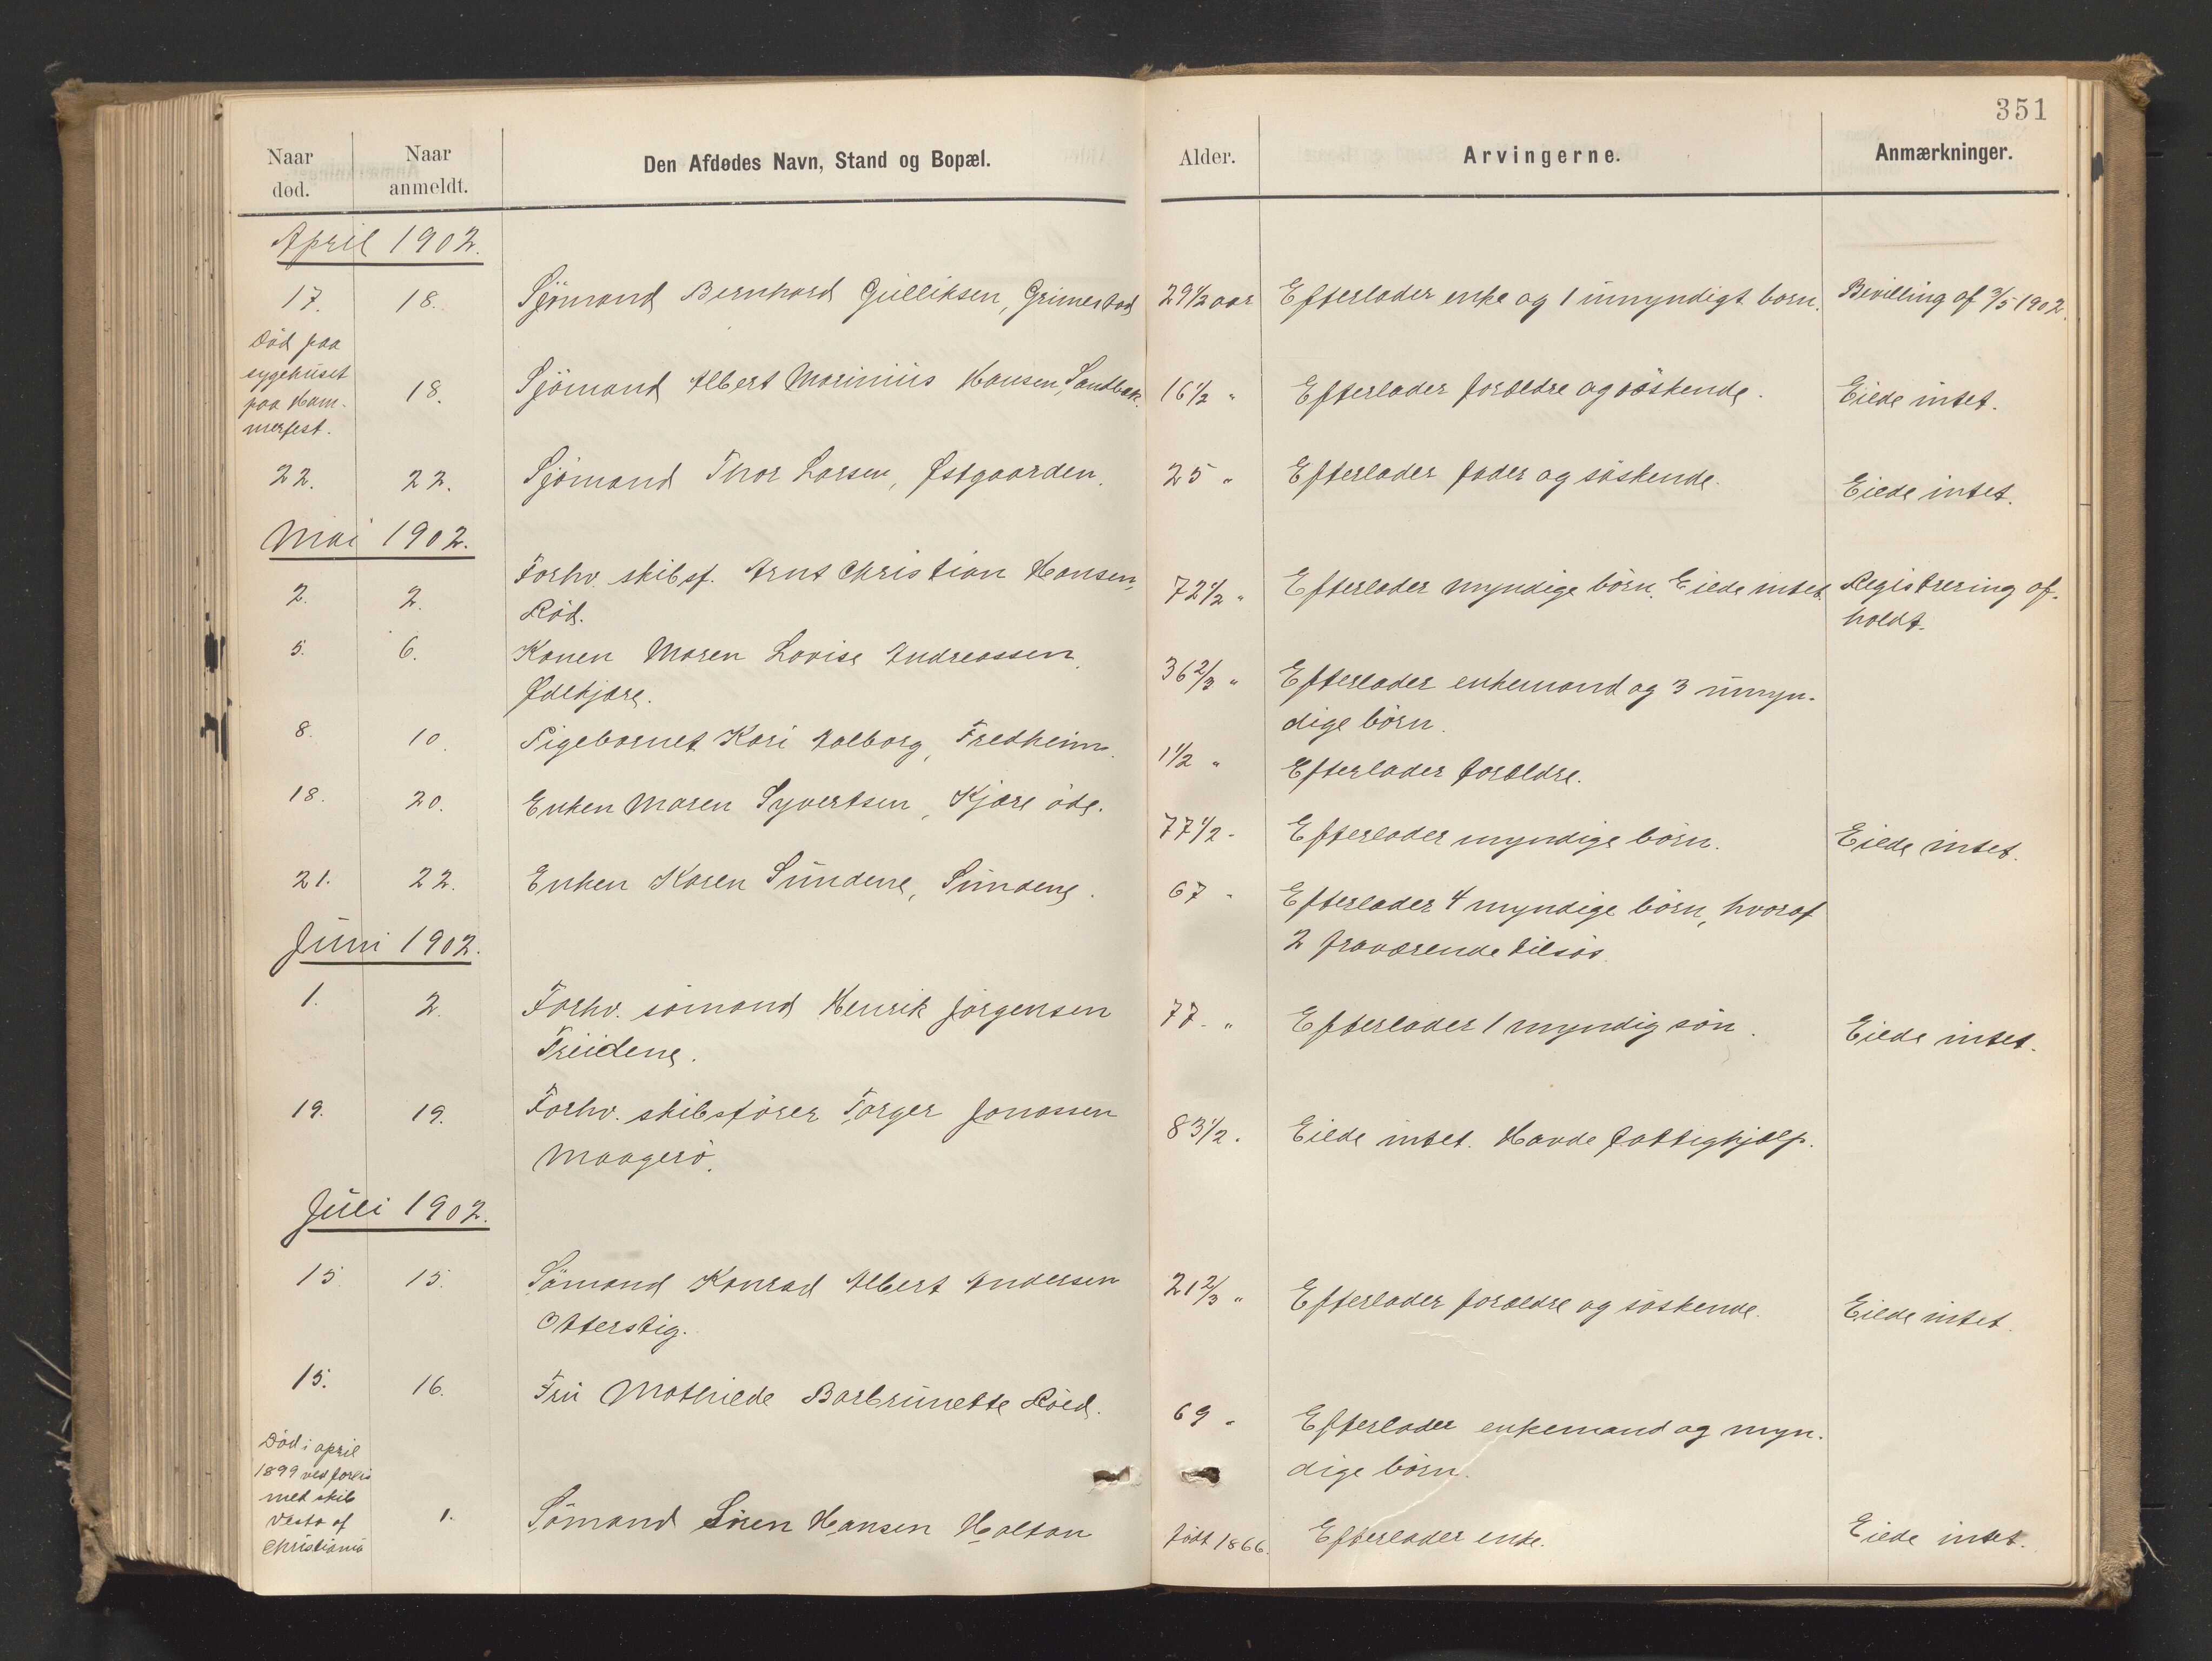 351
Naar død. Naar anmeldt. Den Afdødes Navn, Stand og Bopæl. Alder. Arvingerne. Anmærkninger.
April 1902.
17. 18. Sjömand Bernhard Gulliksen, Grimestad 29 1/2 aar Efterlader enke og 1 umyndigt barn. Bevilling af 3/5 1902.
Död paa
sygehuset
paa Ham-
merfest.
18. Sjömand Albert Marinius Hansen, Sandbæk. 16 1/2 " Efterlader forældre og söskende. Eiede intet.
22. 22. Sjömand Thor Larsen, Østgaarden. 25 " Efterlader fader og söskende. Eiede intet.
Mai 1902.
2. 2. Forhv. skibsf. Arnt Christian Hansen, 72 1/2 " Efterlader myndige börn. Eiede intet. Registrering af-
Röd. holdt.
5. 6. Konen Maren Lovise Andreassen, 36 2/3 " Efterlader enkemand og 3 umyn-
Ødekjære. dige börn.
8. 10. Pigebarnet Kari Aalborg, Fredheim. 1 1/2 " Efterlader forældre.
18. 20. Enken Maren Syvertsen, Kjære öde. 77 1/2 - Efterlader myndige börn. Eiede intet.
21. 22. Enken Karen Sundene, Sundene. 67 - Efterlader 4 myndige börn, hvoraf
2 fraværende tilsös.
Juni 1902.
1. 2. Forhv. sömand Henrik Jörgensen 77. " Efterlader 1 myndig sön. Eiede intet.
19. 19. Forhv. skibsförer Torger Jonassen 83 1/2. Eiede intet. Havde fattighjælp.
Maagerö.
Juli 1902.
15 15. Sömand Konrad Albert Andersen 21 2/3 " Efterlader forældre og söskende. Eiede intet.
Otterstig.
15. 16. Fru Mathilde Barbrunette Röed. 69 " Efterlader enkemand og myn-
dige börn.
Död i april
1899 ved forlis
med skib
Vasta af
Christiania
1. Sömand Sören Hansen Haltan födt 1866. Efterlader enke. Eiede intet.